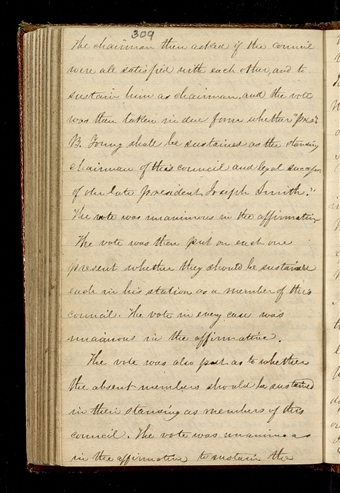 309
The chairman then asked if the council
were all satisfied with each other, and to
sustain him as chairman, and the vote
was then taken in due form whether "pres
B. Young shall be sustained as the standing
chairman of this council and legal successor
of our late president Joseph Smith."
The vote was unanimous in the affirmative.
The vote was then put on each one
present whether they should be sustained
each in his station as a member of this
council. The vote in every case was
unanimous in the affirmative.
The vote was also put as to whether
the absent members should be sustained
in their standing as members of this
council. The vote was unanimous
in the affirmative to sustain the